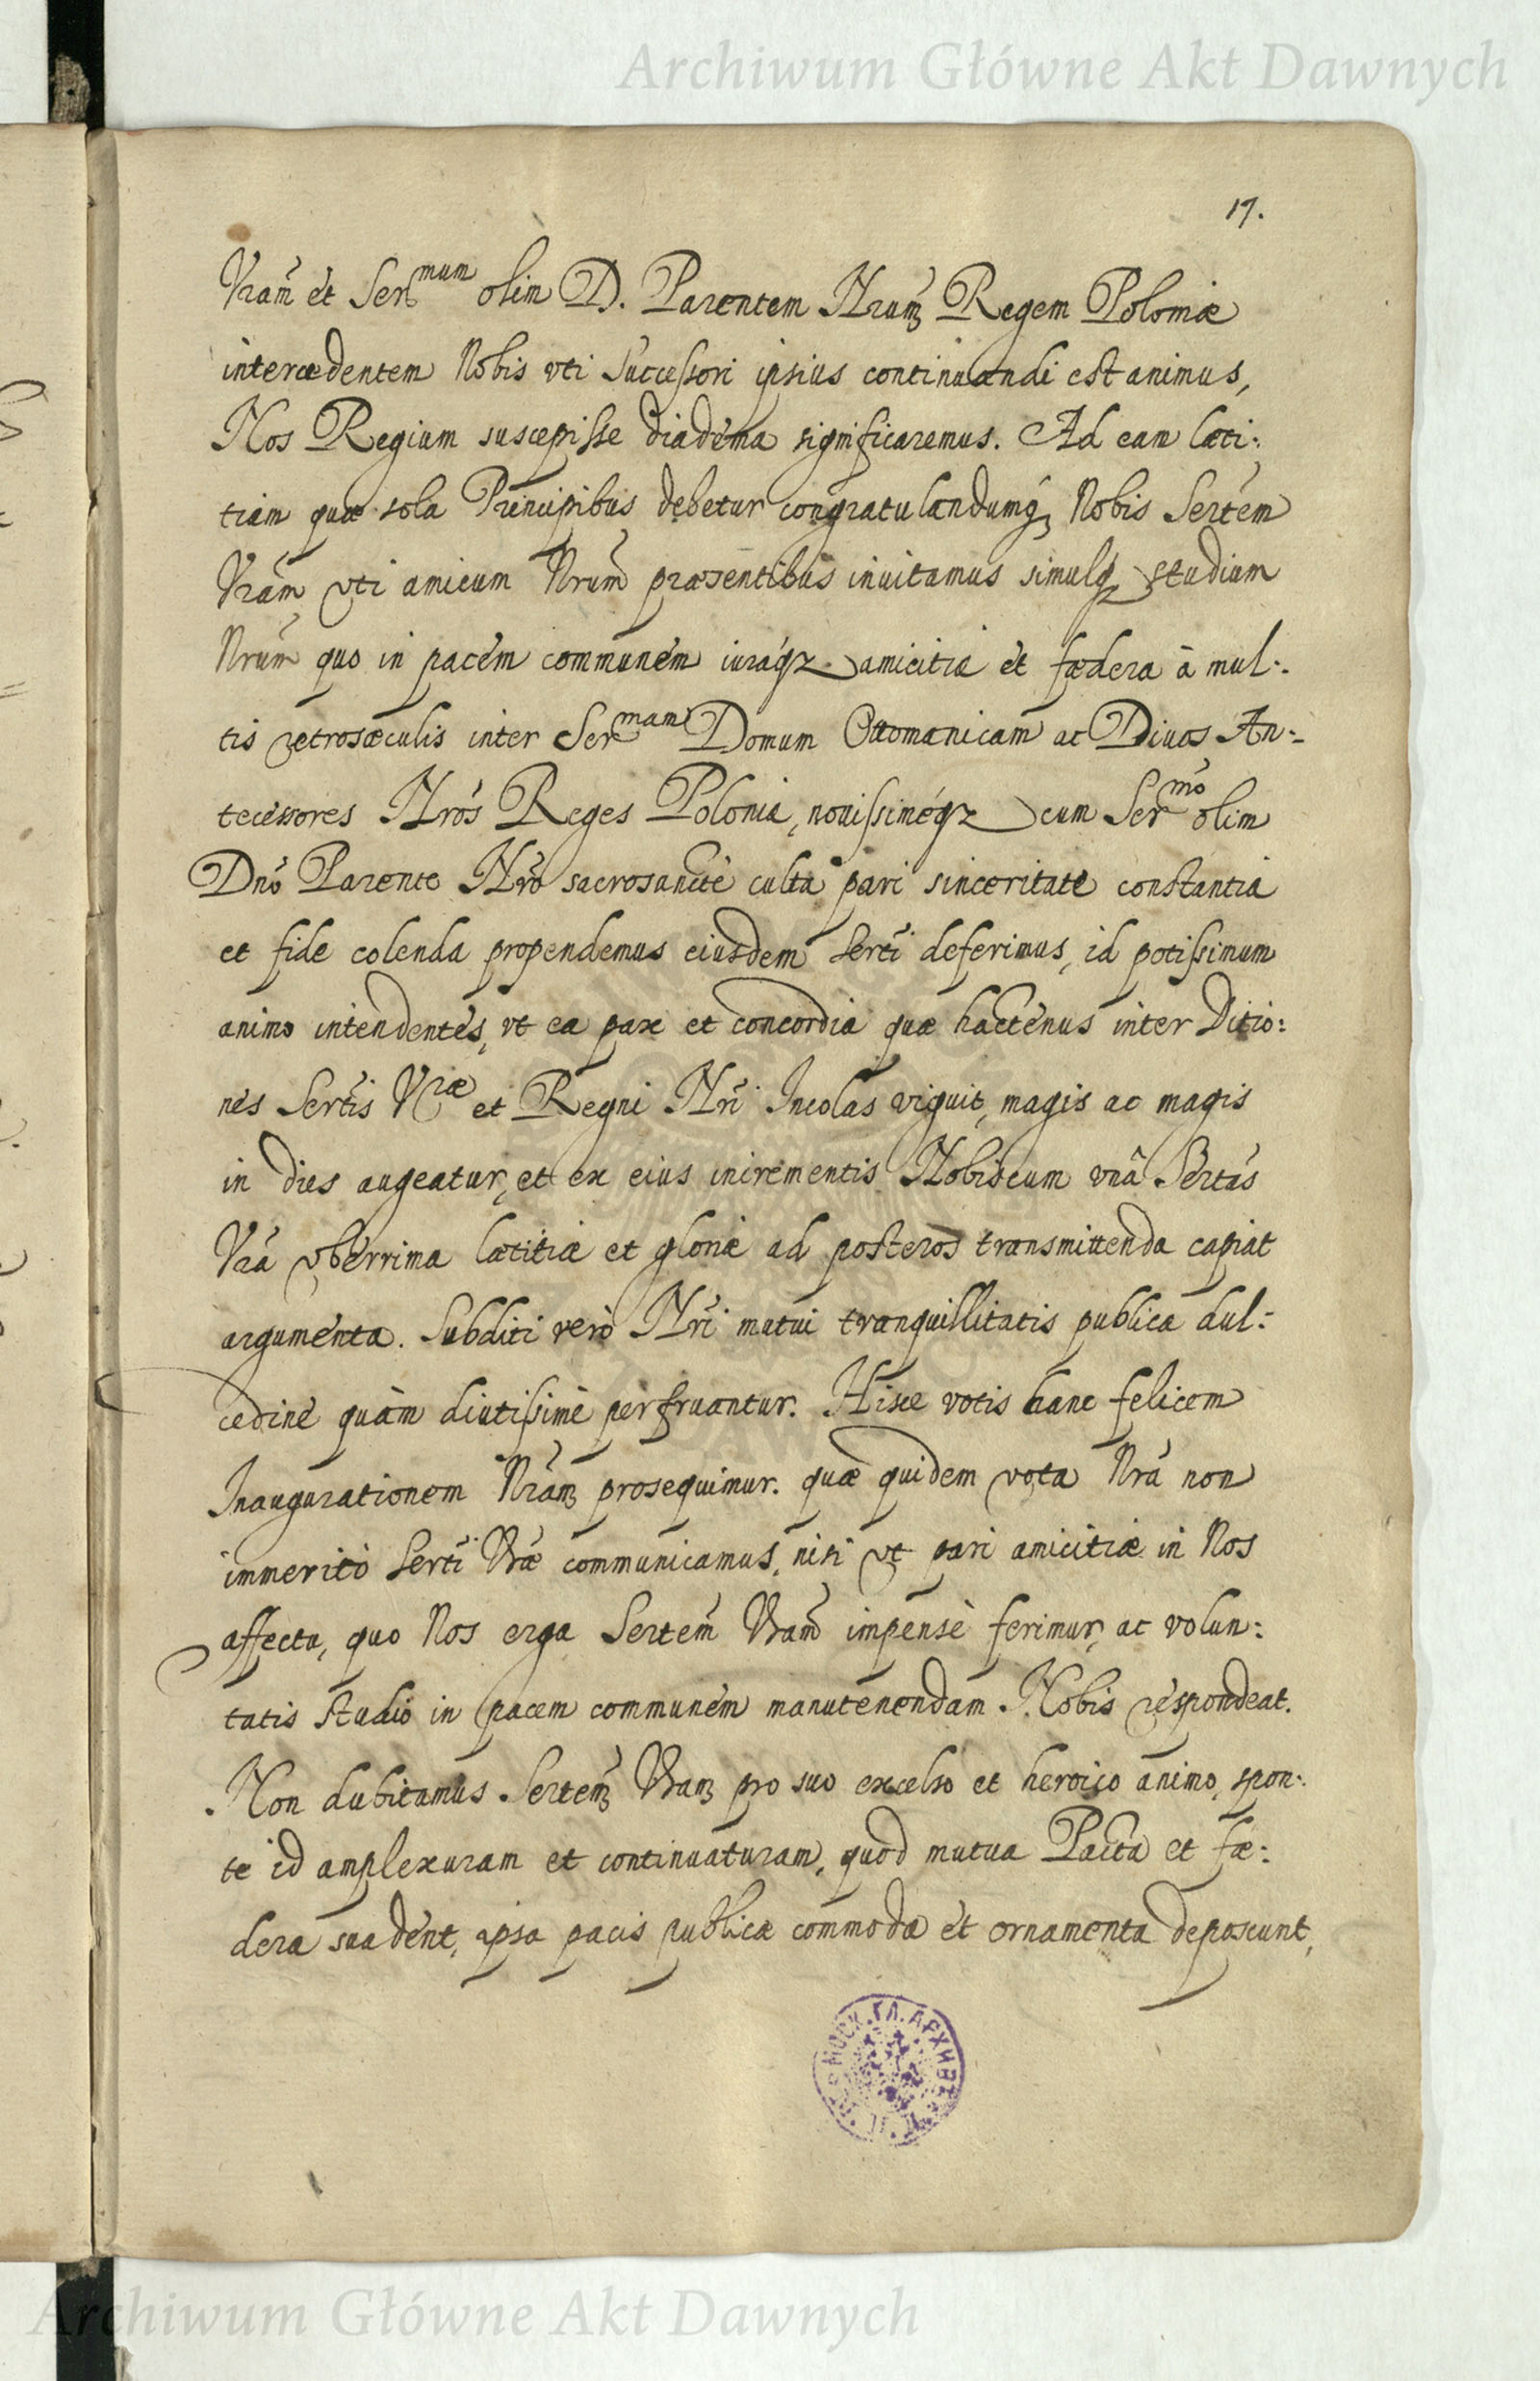 Archiwum Główne Akt Dawnych
17.
Vram̃ et Ser^mum olim D. Parentem Nrum̃ Regem Poloniæ
intercedentem Nobis vti Successori ipsius continuandi est animus,
Nos Regium suscepisse diadema significaremus. Ad eam læti:
tiam quæ sola Principibus debetur congratulandumq; Nobis Sertem̃
Vram̃ vti amicum Nrum̃ præsentibus inuitamus simulq; studium
Nrum̃ quo in pacem communem iuraq; amicitiæ et fædera à mul:
tis retrosæculis inter Ser^mam Domum Ottomanicam ac Diuos An:
tecessores Nros̃ Reges Poloniæ, nouissimeq; cum Ser^mo olim
Dnõ Parente Nrõ sacrosancte culta pari sinceritate constantia
et fide colenda propendemus eiusdem Serti̇̃ deferimus, id potissimum
animo intendentes, vt ea pax et concordia quæ hactenus inter Ditio:
nes Sertis̃ V^ræ et Regni Nri̇̃ Incolas viguit, magis ac magis
in dies augeatur, et ex eius incrementis Nobiscum vnâ Sertas̃
Vrã vberrima lætitiæ et gloriæ ad posteros transmittenda capiat
argumenta. Subditi verò Nri̇̃ mutui tranquillitatis publicæ dul:
cedine quàm diutissimè perfruantur. Hisce votis hanc felicem
Inaugurationem Nram̃ prosequimur. quæ quidem vota Nrã non
immeritò Serti̇̃ Vræ̃ communicamus, nisi vt pari amicitiæ in Nos
affectu, quo Nos erga Sertem̃ Vram̃ impensè ferimur, ac volun:
tatis studio in pacem communem manutenendam Nobis respondeat.
Non dubitamus Sertem̃ Vram̃ pro suo excelso et heroico animo, spon:
te id amplexuram et continuaturam, quod mutua Pacta et fæ:
dera suadent, ipsa pacis publicæ commoda et ornamenta deposcunt,
МОСК. ГЛ. АРХИВ
Archiwum Główne Akt Dawnych